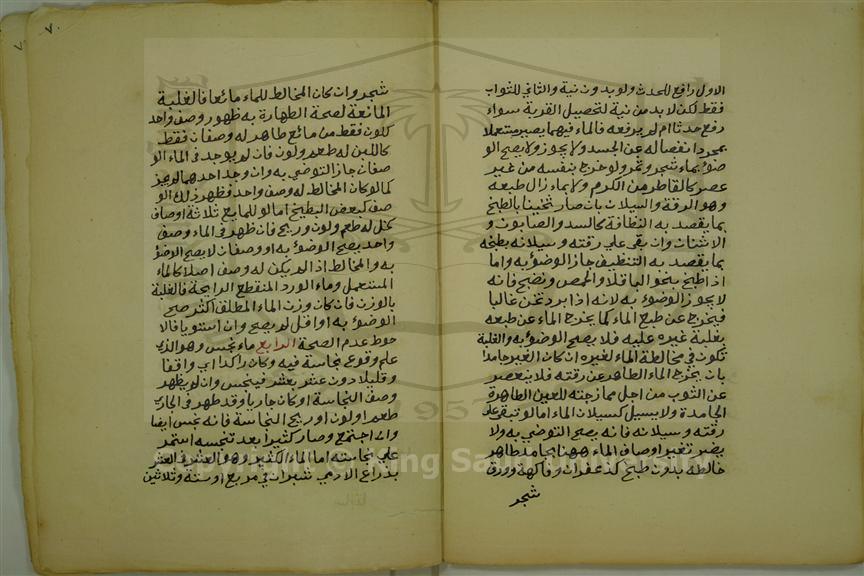 الاول رافع للحدث ولو بدون نية والثاني للثواب
فقط لكن لا بد من نية لتحصيل القربة سواء
رفع حدثا ام لم يرفعه فالماء فيهما يصير مستعملا
بمجرد انفصاله عن الجسد ولا يجوز ولا يصح الو
ضوء بماء شجر وثمر ولو خرج بنفسه من غير
عصر كالقاطر من الكرم ولا بماء زال طبعه
وهو الرقة والسيلان بان صار ثخينا بالطبخ
بما يقصد به النظافة كالسدر والصابون و
الاشنان وان بقي على رقته وسيلانه بطبخه
بما يقصد به التنظيف جاز الوضوء به واما
اذا طبخ بنحو الباقلا والحمص ونضج فانه
لا يجوز الوضوء به لانه اذا برد ثخن غالبا
فيخرج عن طبع الماء كما يخرج الماء عن طبعه
بغلبة غيره عليه فلا يصح الوضوء به والغلبة
تكون في مخالطة الماء لغيره ان كان الغير جامدا
بان يخرج الماء الطاهر عن رقته فلا ينعصر
عن الثوب من اجل ممازجته للعين الطاهرة
الجامدة ولا يسيل كسيلان الماء اما لو بقي على
رقته وسيلانه فانه يصح التوضي به ولا
يضر تغير اوصاف الماء ههنا بجامد طاهر
خالطه بدون طبخ كزعفران وفاكهة وورق
شجر
٧٠
شجر وان كان المخالط للماء مائعا فالغلبة
المانعة لصحة الطهارة به ظهور وصف واحد
كلون فقط من مائع طاهر له وصفان فقط
كاللبن له طعم ولون فان لم يوجد في الماء الو
صفان جاز التوضي به وان وجد احدهما لم يجز
كما لو كان المخالط له وصف واحد فظهر ذلك الو
صف كبعض البطيخ اما لو للمايع ثلاثة اوصاف
كخل له طعم ولون وريح فان ظهر في الماء وصف
واحد يصح الوضوء به او وصفان لا يصح الوضوء
به والمخالط اذا لم يكن له وصف اصلا كالماء
المستعمل وماء الورد المنقطع الرايحة فالغلبة
بالوزن فان كان وزن الماء المطلق اكثر صح
الوضوء به او اقل لم يصح وان استويا فالا
حوط عدم الصحة الرابع ماء نجس وهو الذي
علم وقوع نجاسة فيه وكان راكدا اي واقفا
وقليلا دون عشر بعشر فينجس وان لم يظهر
وصف النجاسة او كان جاريا وقد ظهر في الجاري
طعم او لون او ريح النجاسة فانه نجس ايضا
وان اجتمع وصار كثيرا بعد تنجسه استمر
على نجاسته اما الماء الكثير وهو العشر في العشر
بذراع الادمي شبران في مربع او ستة وثلاثين
Copyright © King Saud University
1957